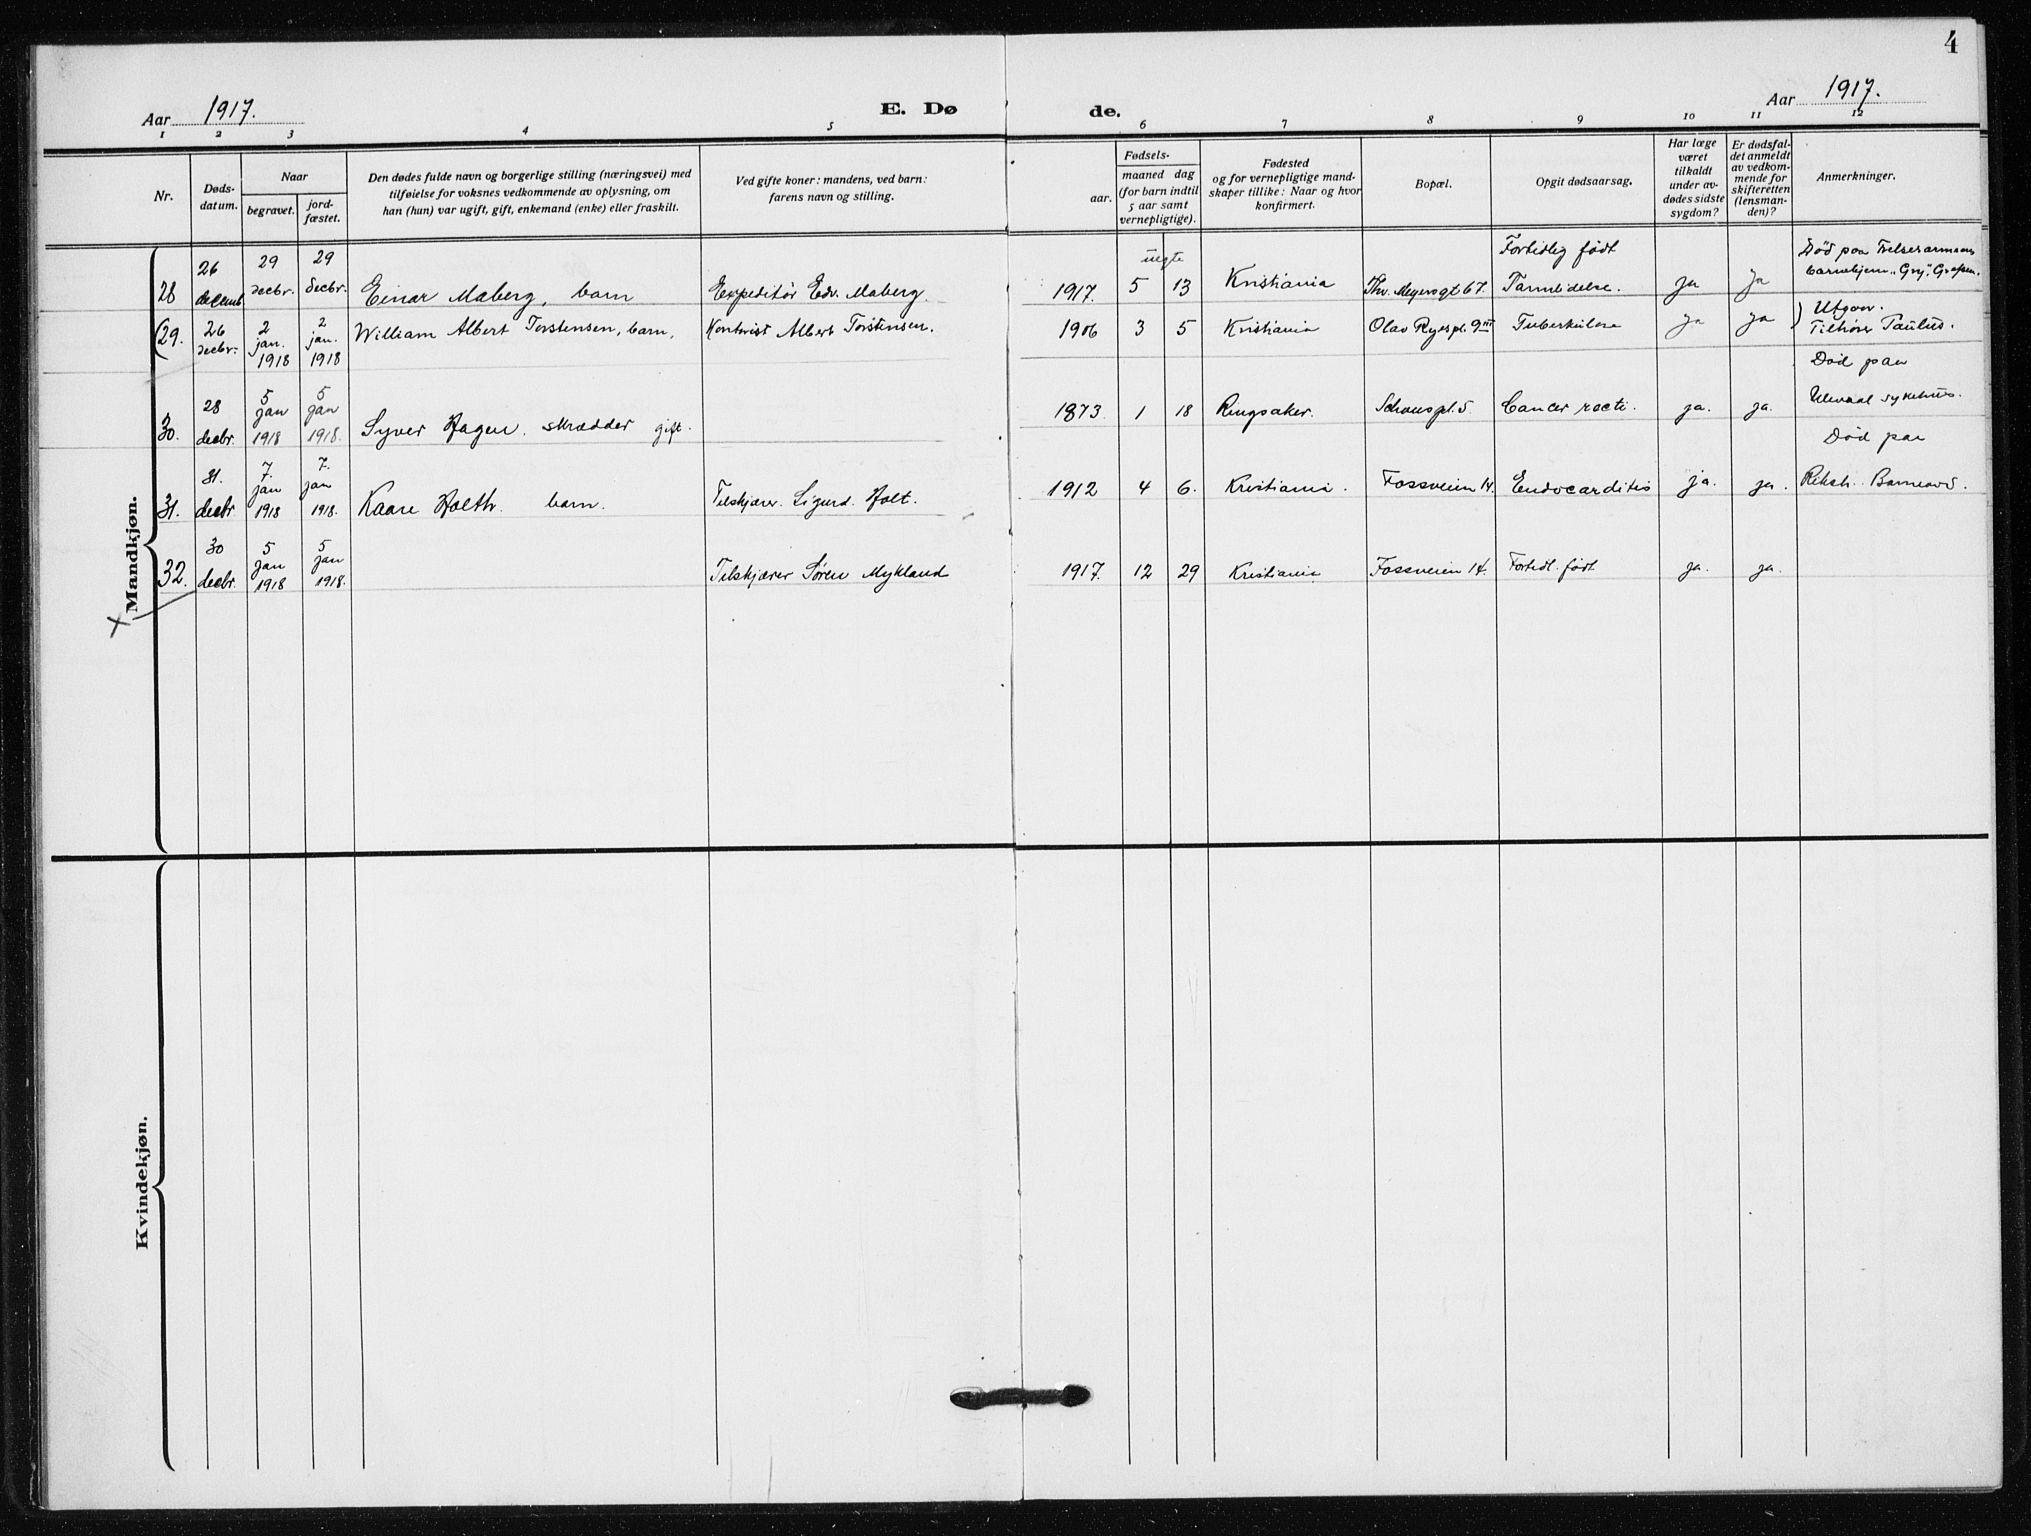 4
Aar 1917.
E. Dø
de.
Aar 1917.
1 2 3 4 5 6 7 8 9 10 11 12
Nr.
Døds-
datum.
Naar
begravet.
jord-
fæstet.
Den dødes fulde navn og borgerlige stilling (næringsvei) med
tilføielse for voksnes vedkommende av oplysning, om
han (hun) var ugift, gift, enkemand (enke) eller fraskilt.
Ved gifte koner: mandens, ved barn:
farens navn og stilling.
Fødsels-
aar.
maaned dag
(for barn indtil
5 aar samt
vernepligtige).
Fødested
og for vernepligtige mand-
skaper tillike: Naar og hvor
konfirmert.
Bopæl.
Opgit dødsaarsag.
Har læge
været
tilkaldt
under av-
dødes sidste
sygdom?
Er dødsfal-
det anmeldt
av vedkom-
mende for
skifteretten
(lensman-
den)?
Anmerkninger.
Mandkjøn.
28
26
decemb
29
decbr.
29
decbr.
Einar Maberg, barn
Expeditör Edv. Maberg.
1917.
uegte
5 13
Kristiania
Thv. Meyersgt 67.
Fortidlig födt
Tarmlidelse.
ja
ja
Död paa Frelsesarmeens
barnehjem "Gry",
(29.
26
decbr.
2
jan.
1918
2
jan.
1918
William Albert Torstensen, barn,
Kontorist Albert Torstensen.
1906
3 5
Kristiania
Olav Ryespl. 9 III
Tuberkulose
ja
ja
) Utgaar.
Tilhører Paulus.
30.
28
decbr.
5
jan
1918
5
jan
1918.
Syver Hagen. skrædder gift.
1873.
1 18
Ringsaker.
Schouspl. 5.
Cancer recti.
ja.
ja.
Död paa
Ulevaal sykehus.
31.
31.
decbr
7.
jan
1918
7.
jan
1918.
Kaare Holth. barn.
Tilskjærer. Sigurd. Holt.
1912
4 6.
Kristiania.
Fossveien 14.
Endocarditis
ja.
ja.
Död paa
Riksh. Barneavd.
x
32.
30
decbr.
5
jan
1918
5
jan
1918.
Tilskjærer Sören Mykland
1917.
12 29
Kristiania
Fossveien 14.
Fortidl. födt
ja.
ja.
Kvindekjøn.